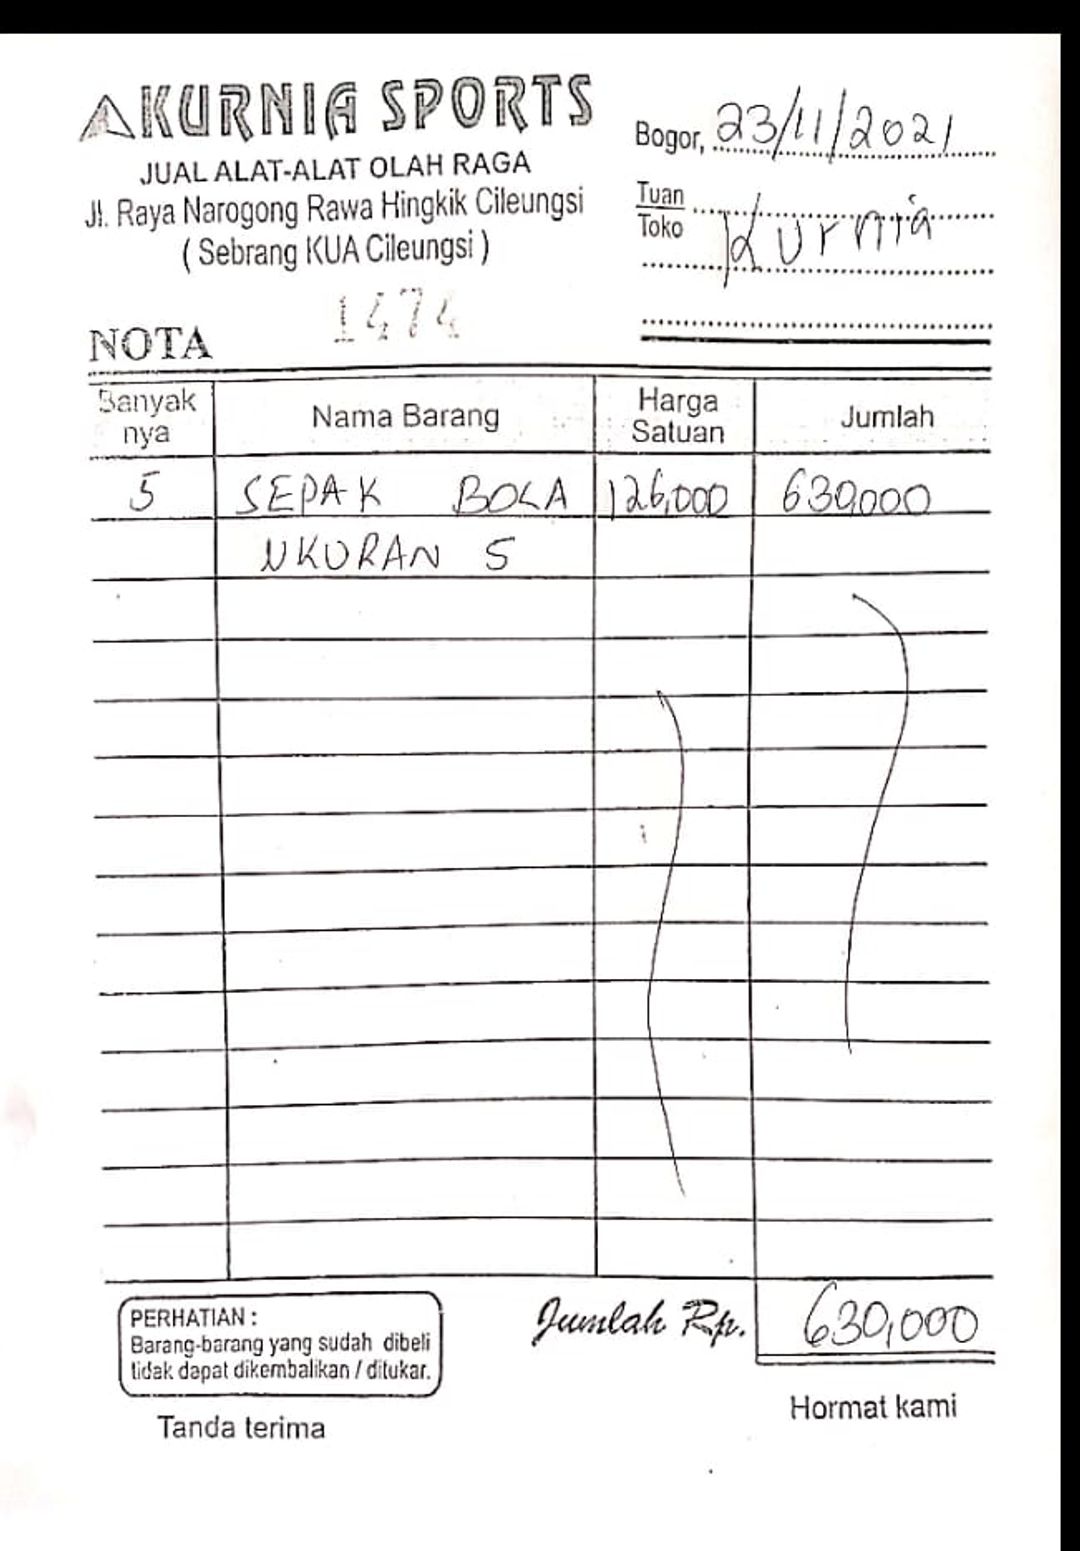 KURNIA SPORTS
JUAL ALAT-ALAT OLAH RAGA
Jl. Raya Narogong Rawa Hingkik Cileungsi
( Sebrang KUA Cileungsi )
Bogor, 23/11/2021
Tuan
Toko
Kurnia
1474
NOTA
Banyak nya Nama Barang Harga Satuan Jumlah
5 SEPAK BOLA 126,000 630,000
UKURAN 5
Jumlah Rp. 630,000
PERHATIAN :
Barang-barang yang sudah dibeli
tidak dapat dikembalikan / ditukar.
Tanda terima
Hormat kami